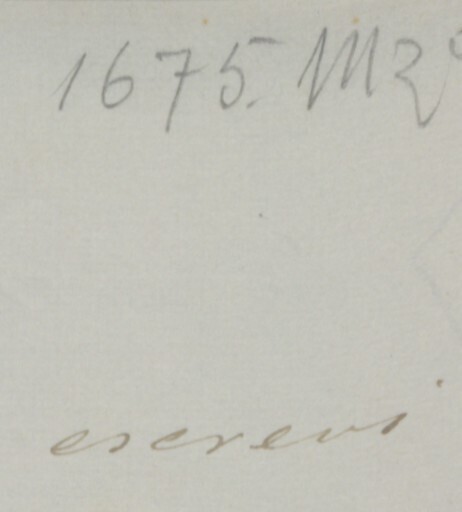 1675. Mzº
escrevi